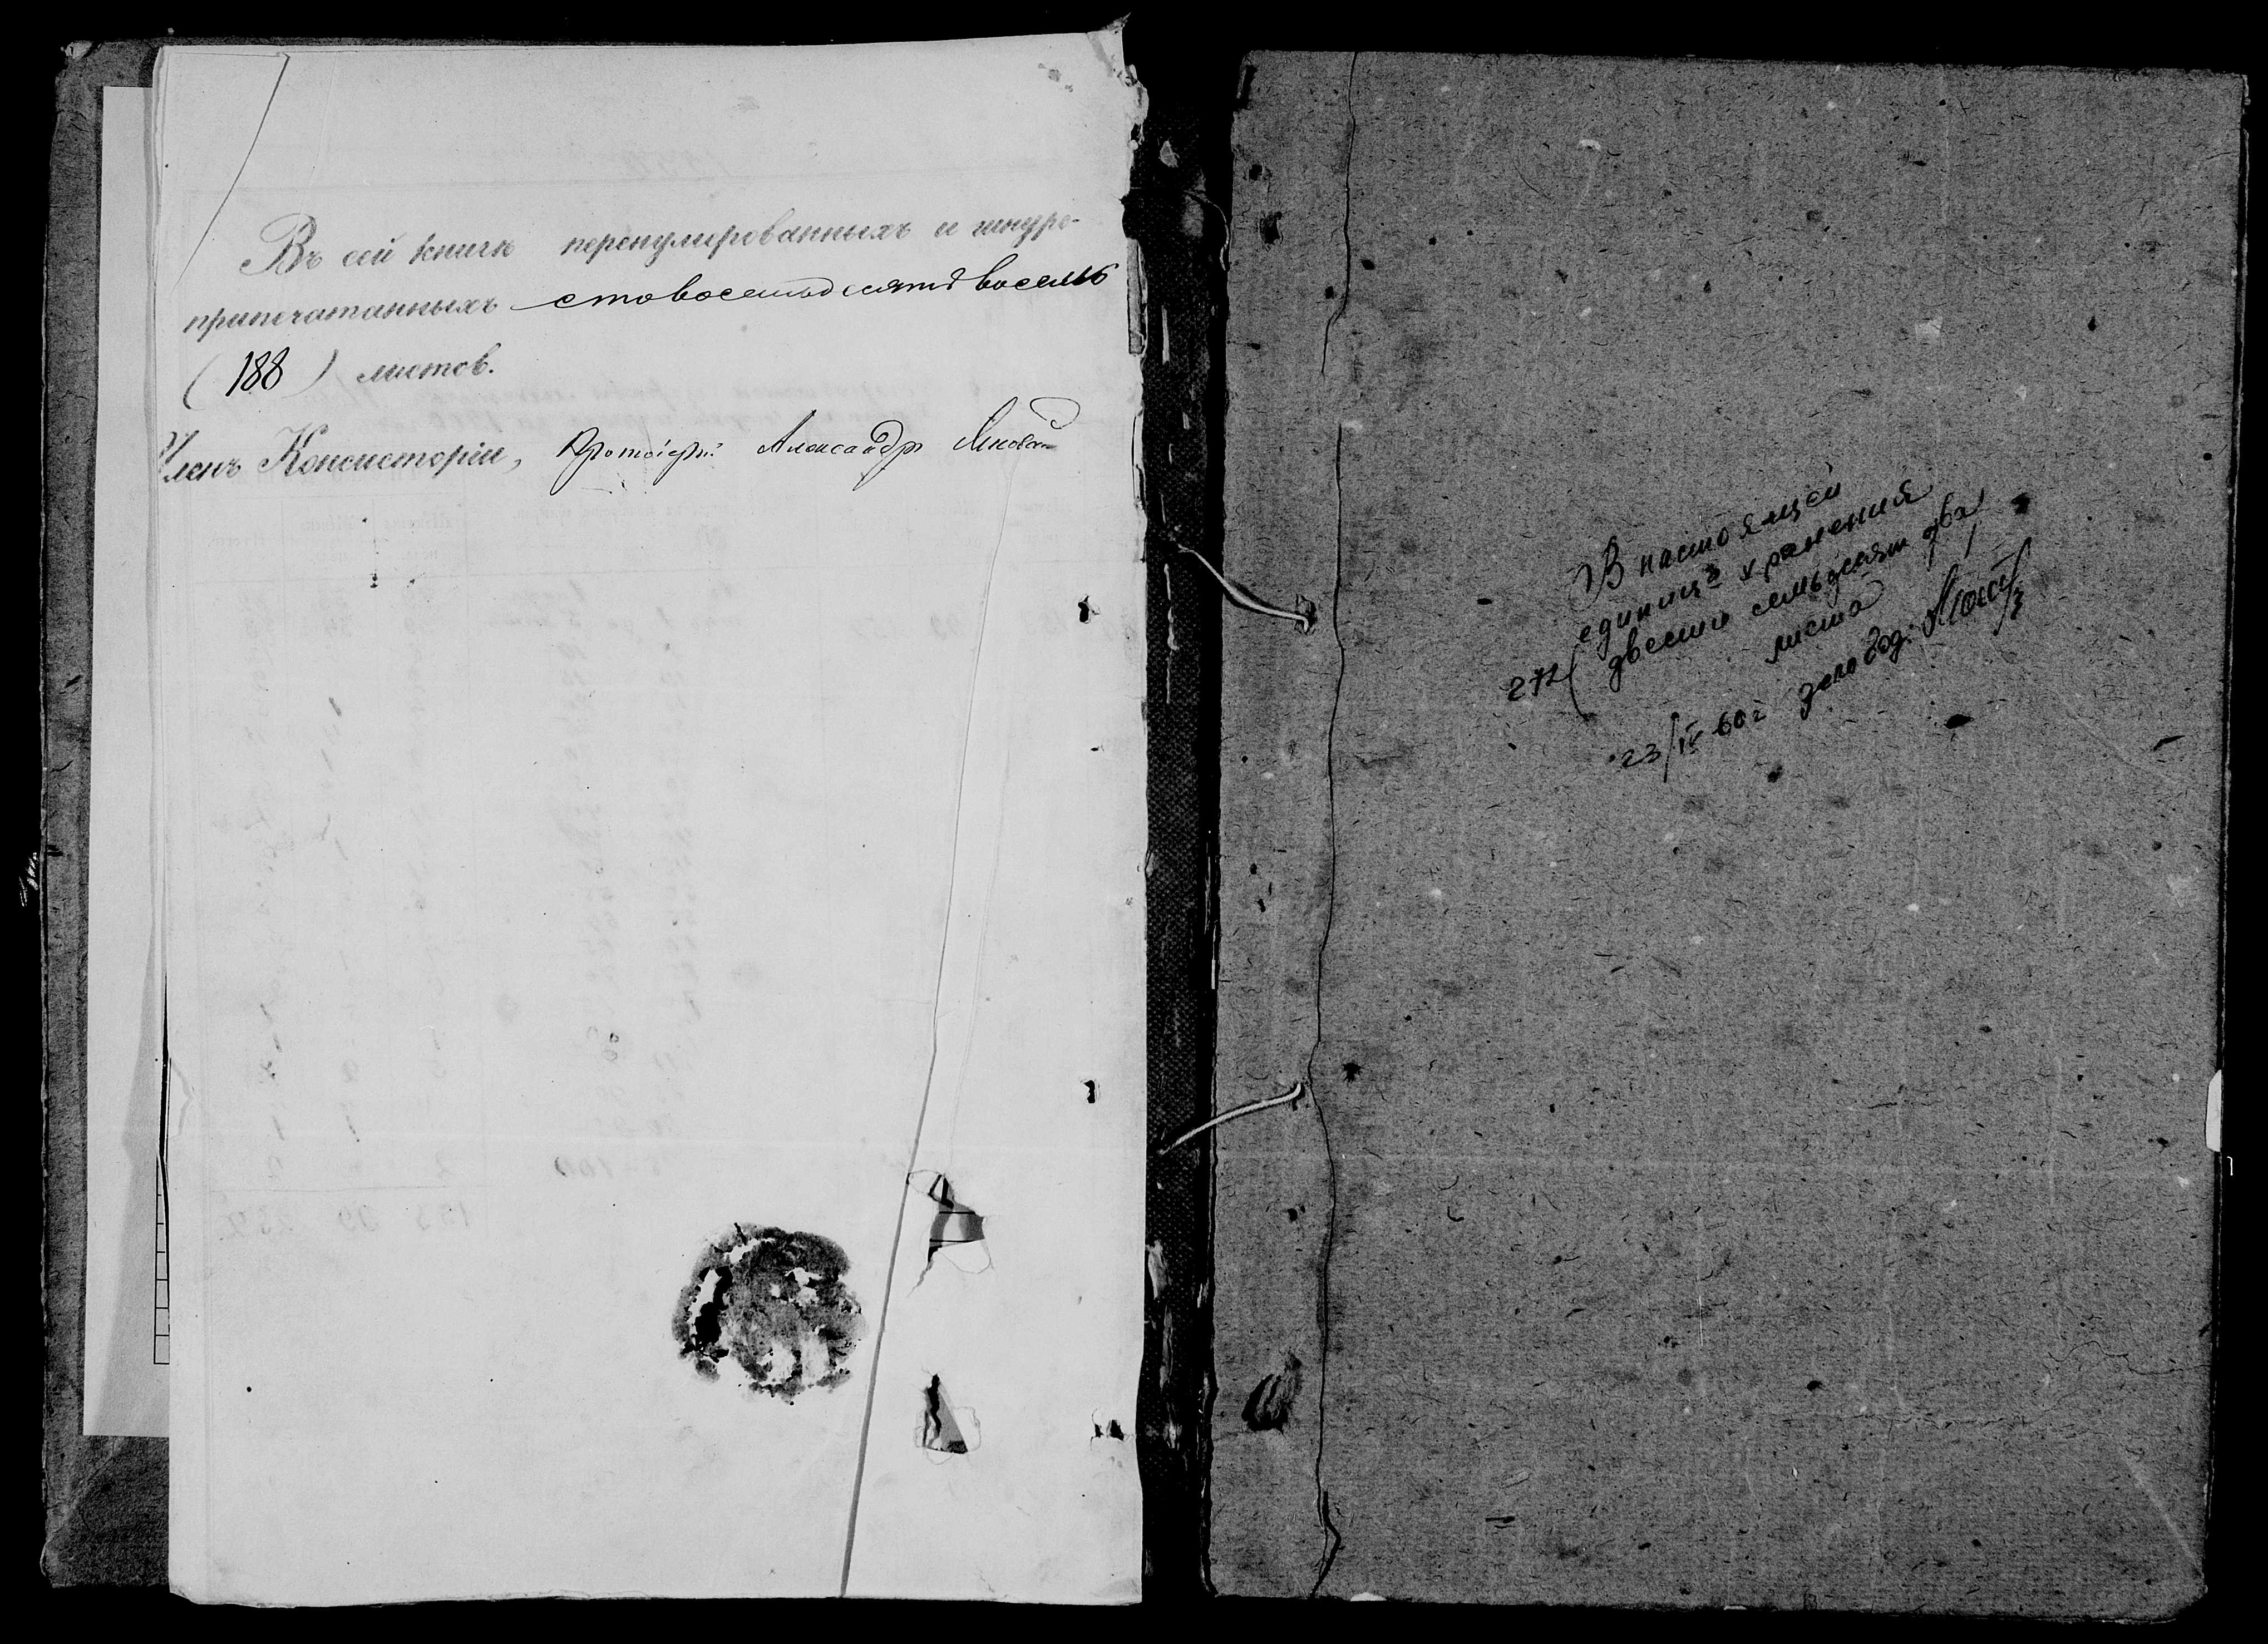 Въ сей книгѣ перенумерованныхъ и шнуро-
припечатанныхъ стовосемьдесятъ восемь
(188) листов.
Членъ Консисторіи, Протоіерей Александр
В настоящей
единице хранения
272 ( двести семьдесят два
листа
23/IV 60 г деловод: